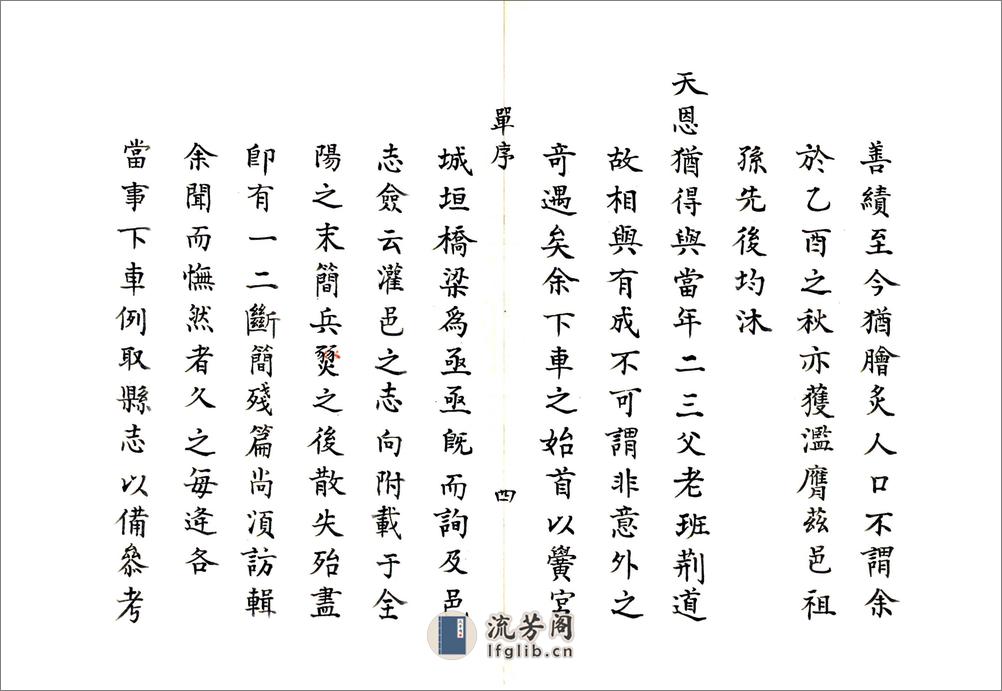 善績至今猶膾炙人口不謂余
於乙酉之秋亦獲濫膺茲邑祖
孫先後均沐
天恩猶得與當年二三父老班荆道
故相與有成不可謂非意外之
竒遇矣余下車之始首以黌宮
單序
四
城垣橋梁為亟亟旣而詢及邑
志僉云灌邑之志向附載于全
陽之末簡兵燹之後散失殆盡
卽有一二斷簡殘篇尚湏訪輯
余聞而憮然者久之每逢各
當事下車例取縣志以備叅考
流芳阁
lfglib.cn